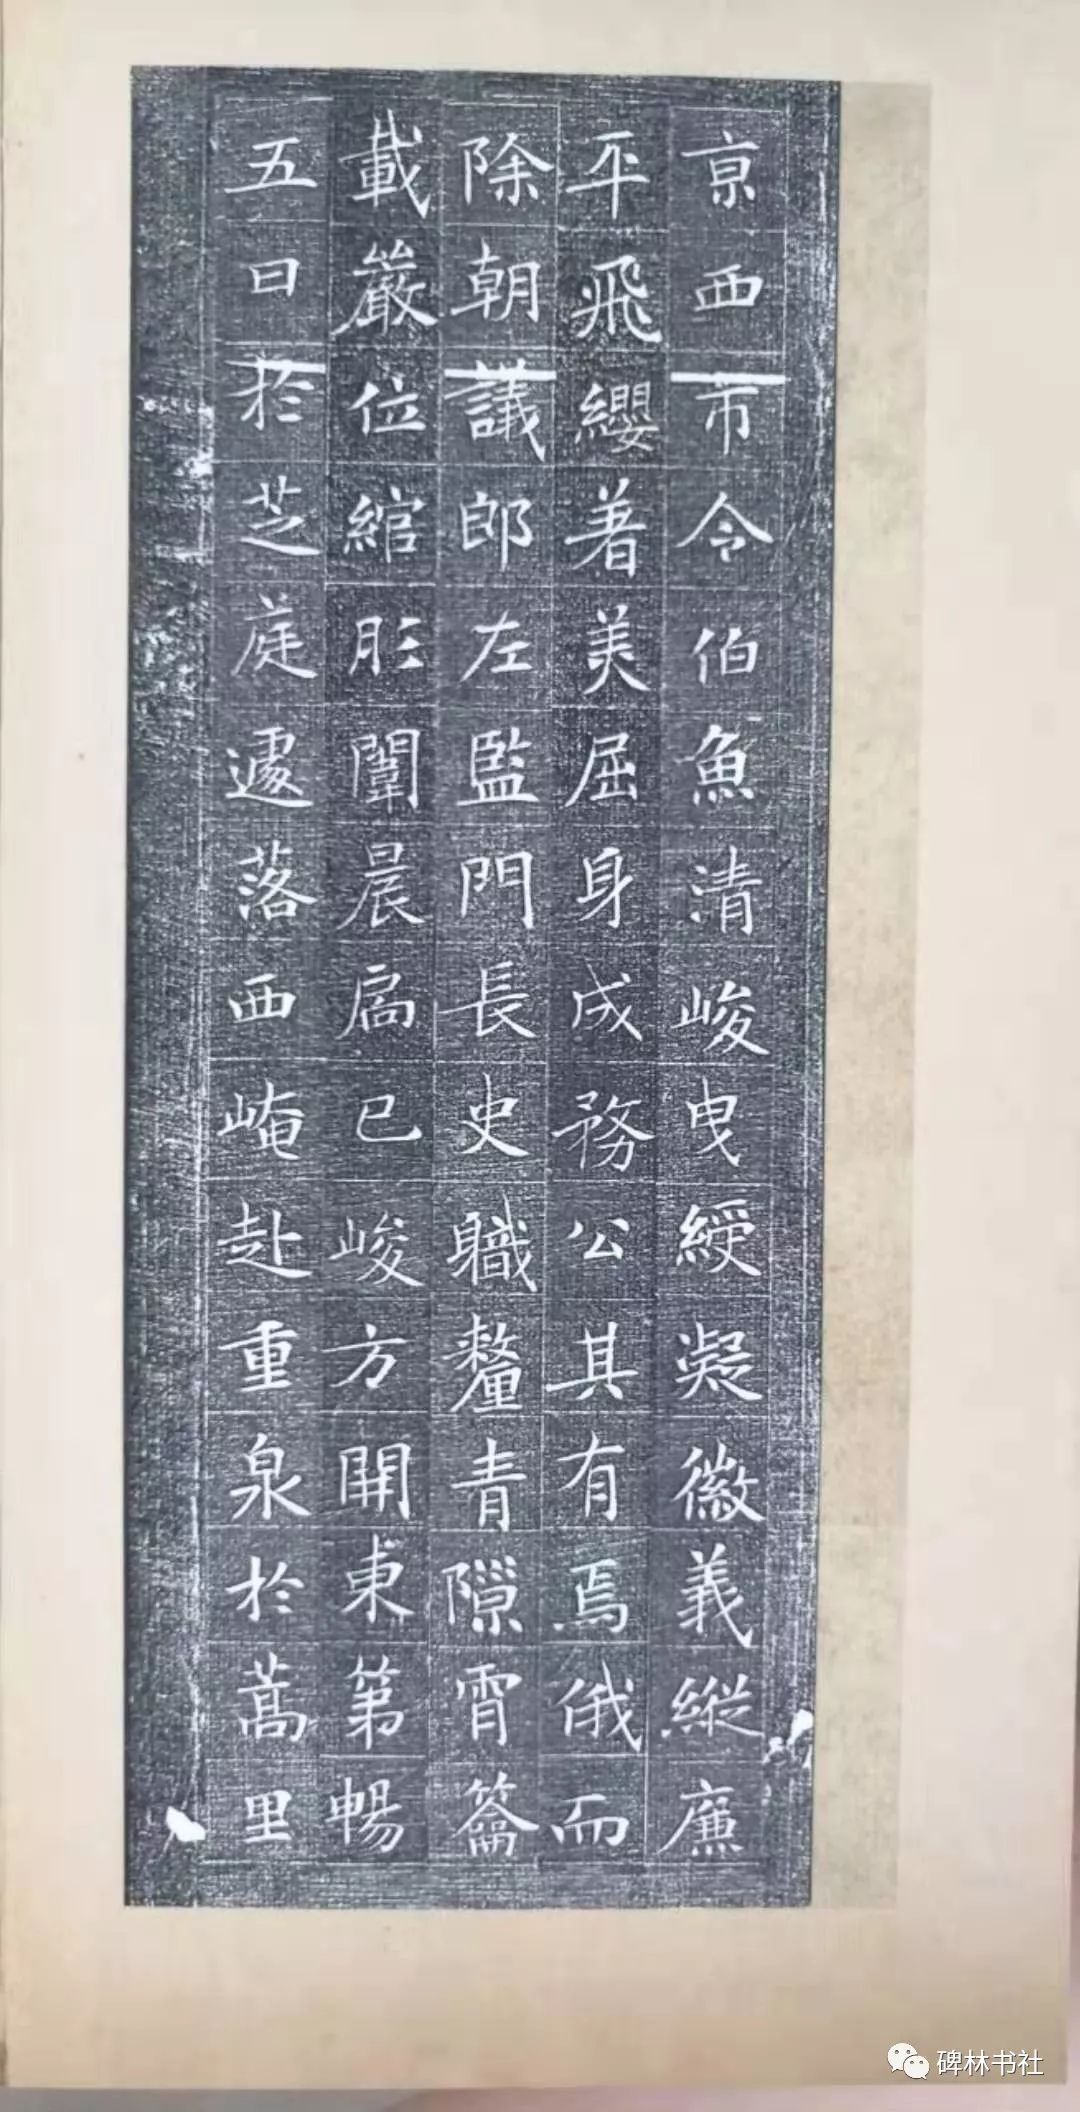 京西市令伯魚清峻曳綬凝徽義縱廉
平飛纓著美屈身成務公其有焉俄而
除朝議郎左監門長史職釐青隙霄籥
載嚴位綰彤闈晨扃已峻方開東第暢
五日於芝莚遽落西崦赴重泉於蒿里
碑林书社